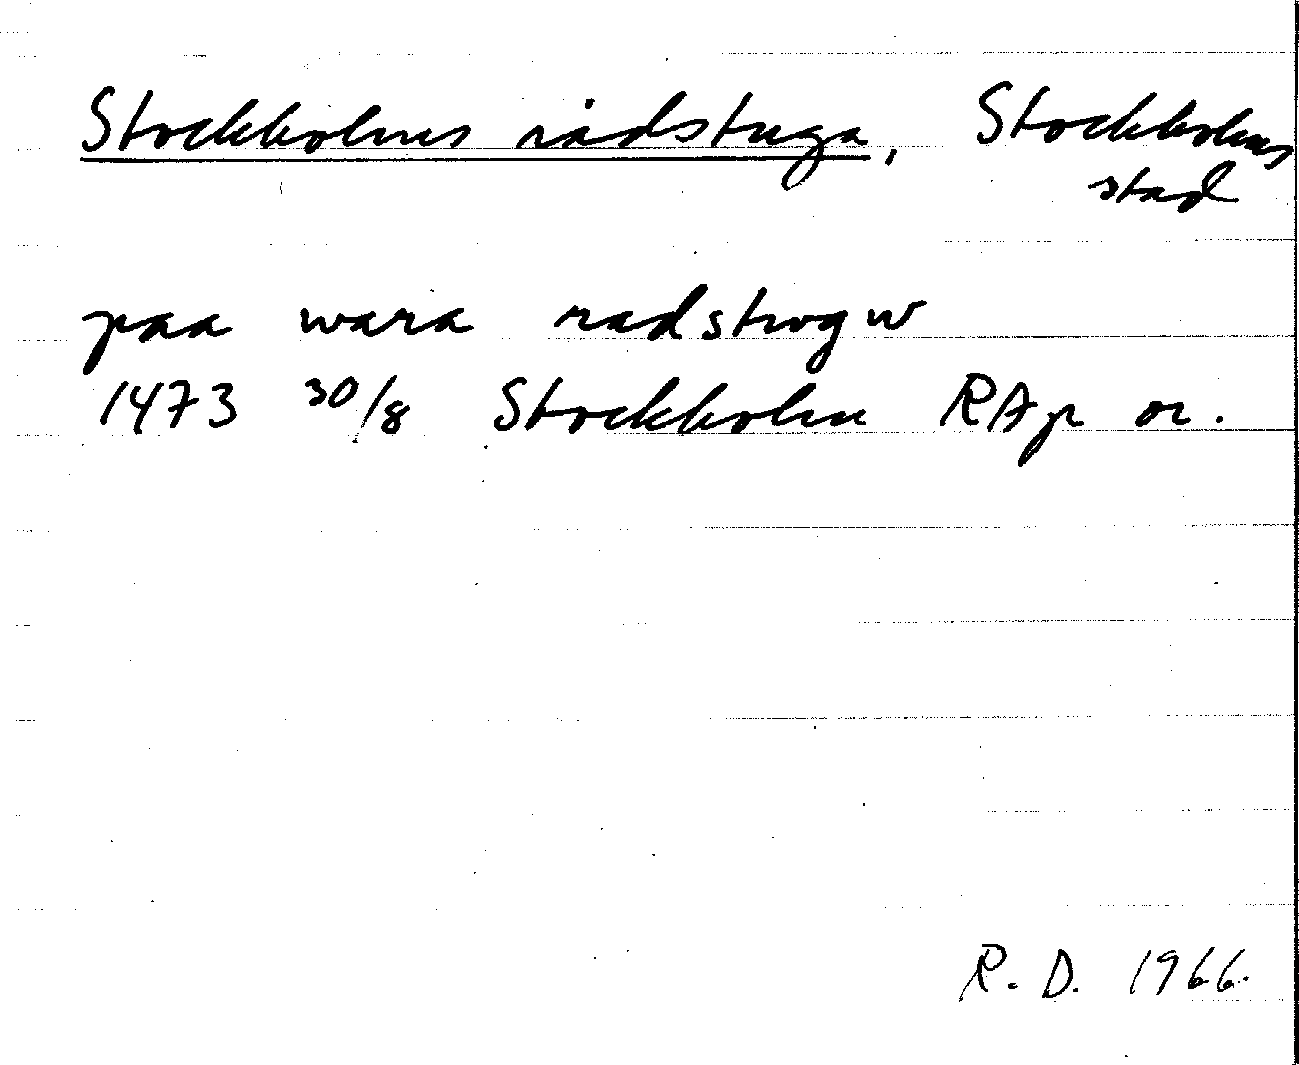 Stockholms rådstuga, Stockholms
stad
paa wara radstwgw
1473 30/8 Stockholm RAp or.
R. D. 1966.